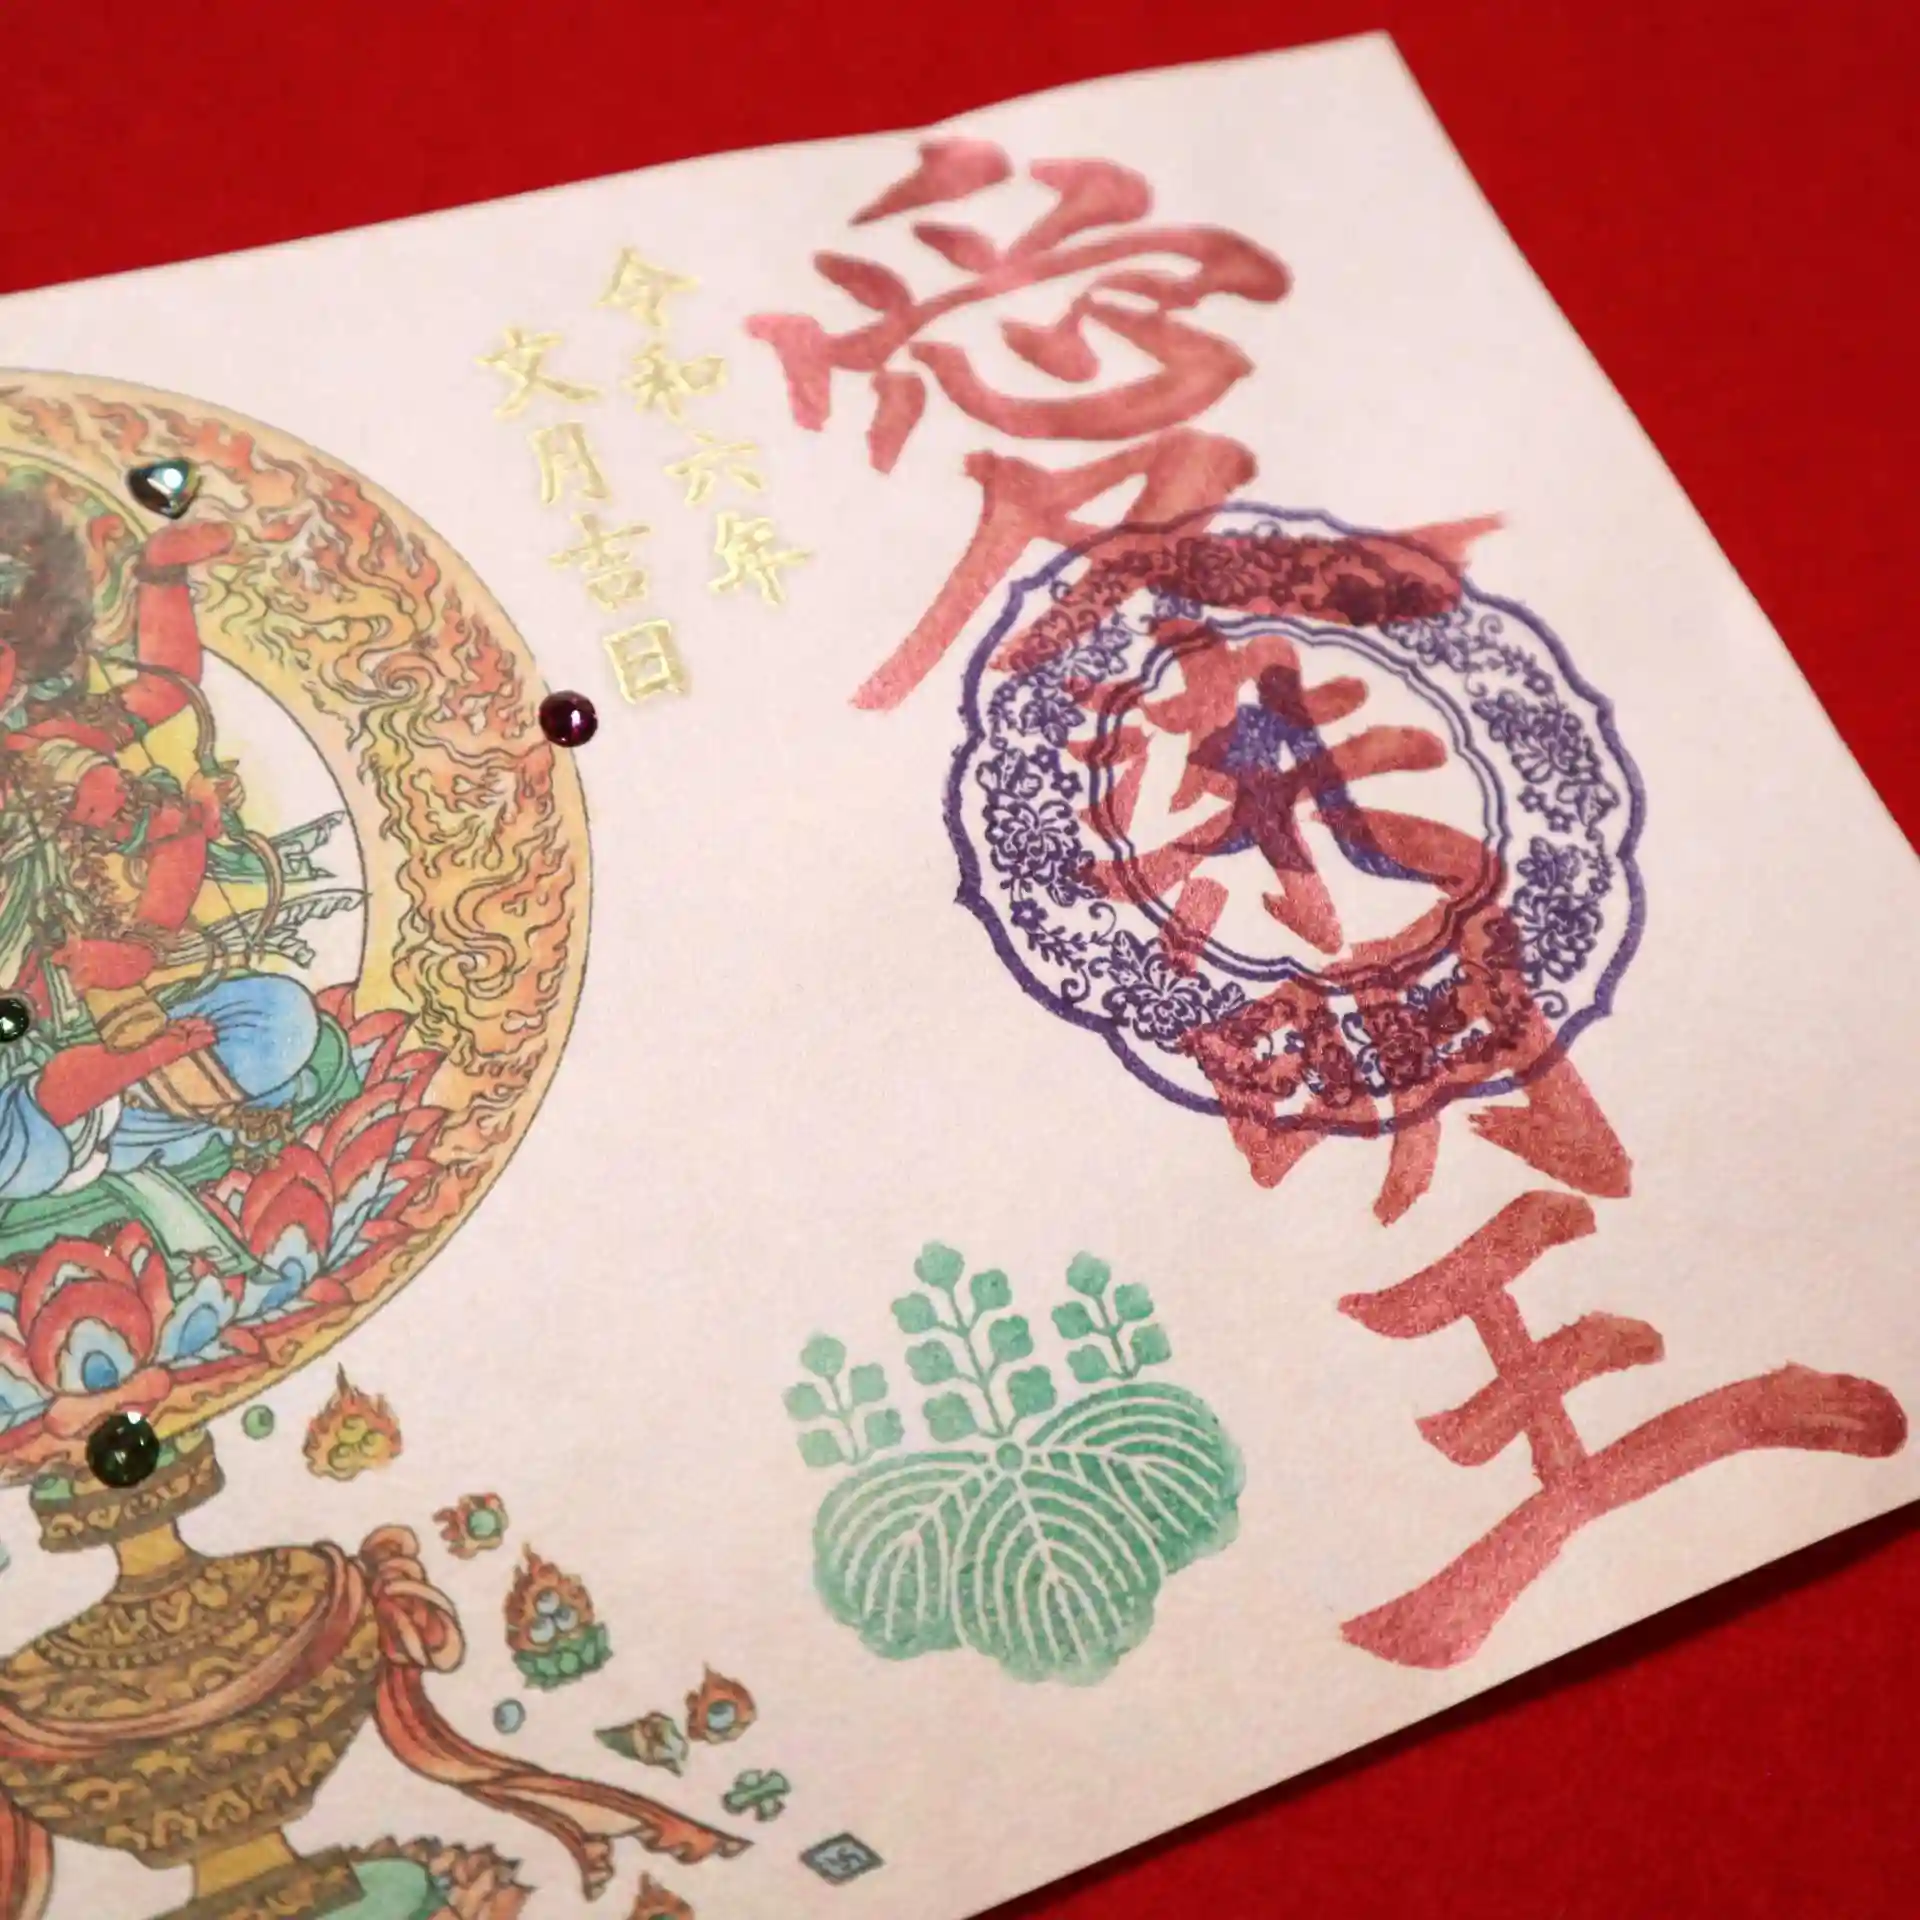 愛染明王
令和六年
文月吉日